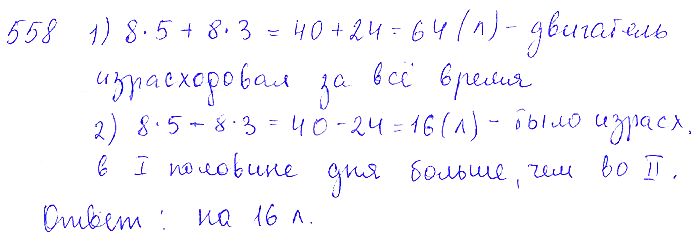 558 1) 8·5 + 8·3 = 40 + 24 = 64 (л) – двигатель
израсходовал за всё время
2) 8·5 – 8·3 = 40 – 24 = 16 (л) – было израсх.
в I половине дня больше, чем во II.
Ответ: на 16 л.